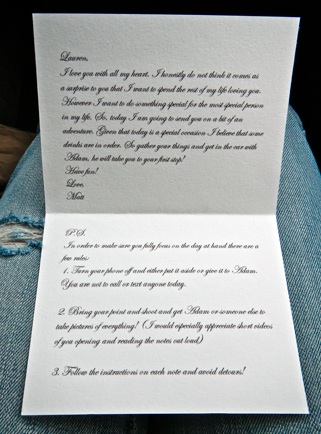 Lauren,
I love you with all my heart. I honestly do not think it comes as
a surprise to you that I want to spend the rest of my life loving you.
However I want to do something special for the most special person
in my life. So, today I am going to send you on a bit of an
adventure. Given that today is a special occasion I believe that some
drinks are in order. So gather your things and get in the car with
Adam, he will take you to your first stop!
Have fun!
Love,
Matt
P.S.
In order to make sure you fully focus on the day at hand there are a
few rules:
1. Turn your phone off and either put it aside or give it to Adam.
You are not to call or text anyone today.
2. Bring your point and shoot and get Adam or someone else to
take pictures of everything! (I would especially appreciate short videos
of you opening and reading the notes out loud)
3. Follow the instructions on each note and avoid detours!